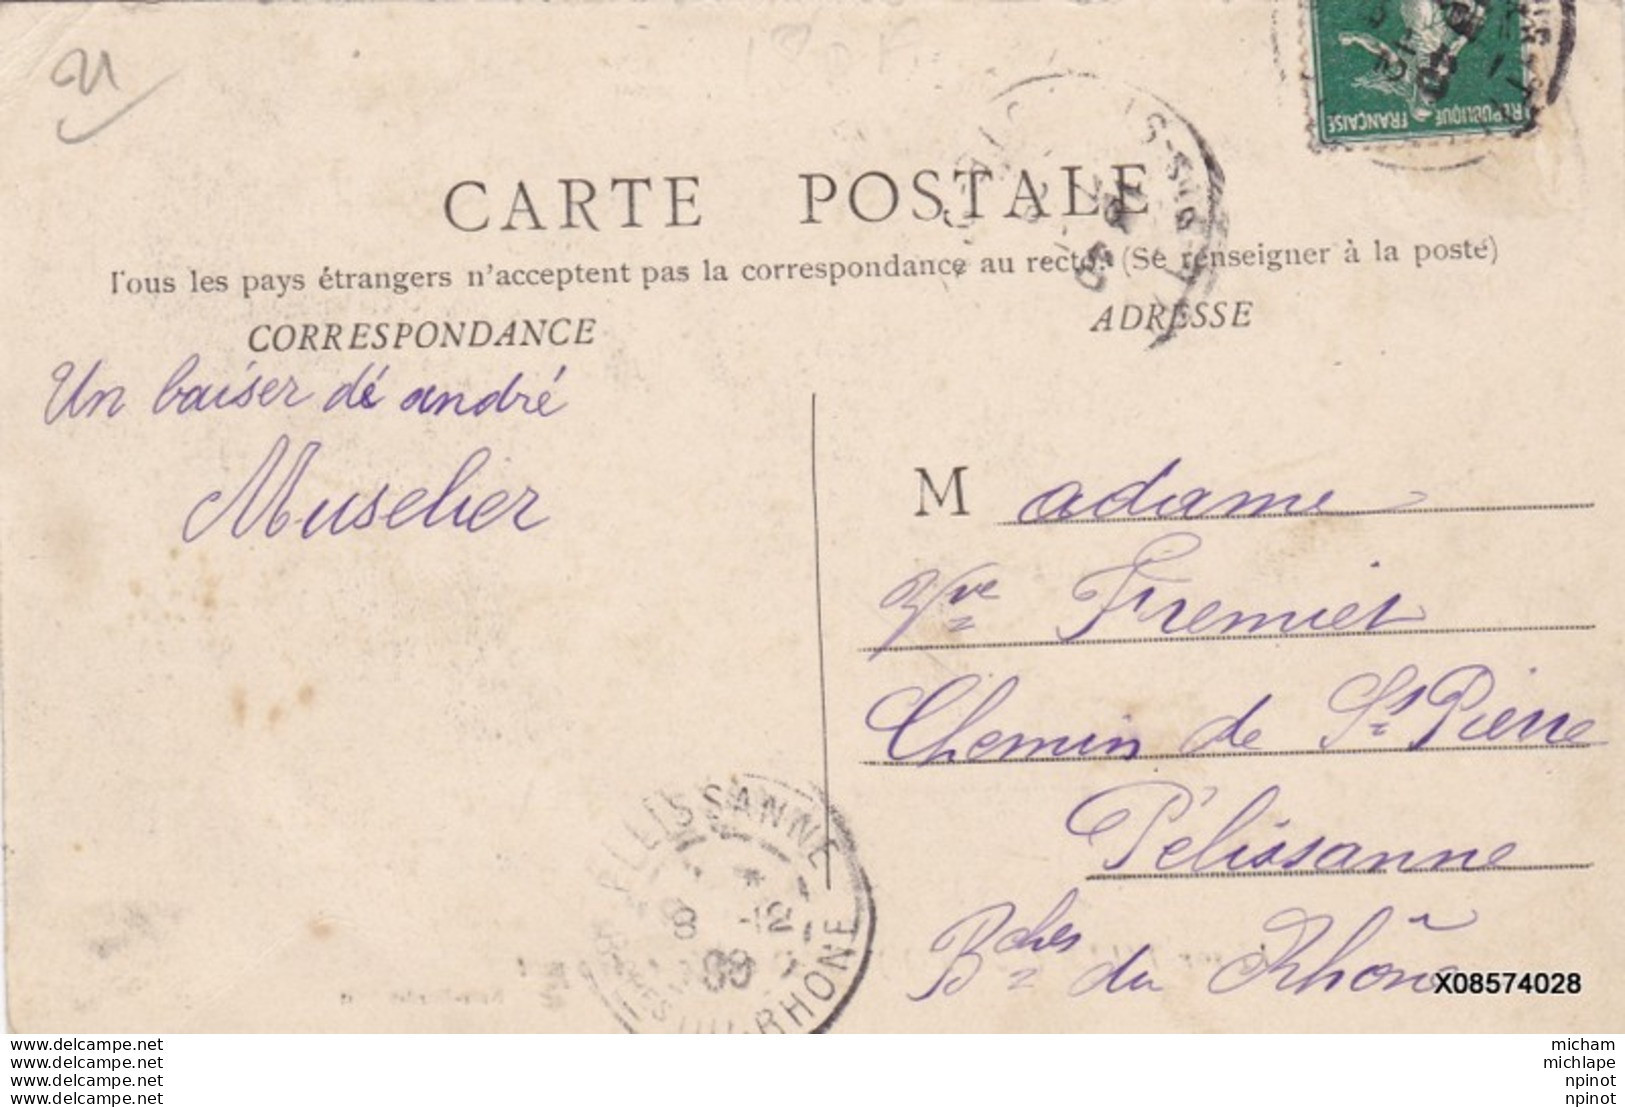 21
RÉPUBLIQUE FRANÇAISE
CARTE POSTALE
Tous les pays étrangers n'acceptent pas la correspondance au recto. (Se renseigner à la poste)
CORRESPONDANCE
ADRESSE
Un baiser de andré
Muselier
Madame
Vve Fremiet
Chemin de St Pierre
Pélissanne
Bches du Rhône
PELISSANNE
8 -12
09
BCHES DU RHONE
X08574028
delcampe.net
delcampe.net
delcampe.net
delcampe.net
micham
michlape
npinot
npinot